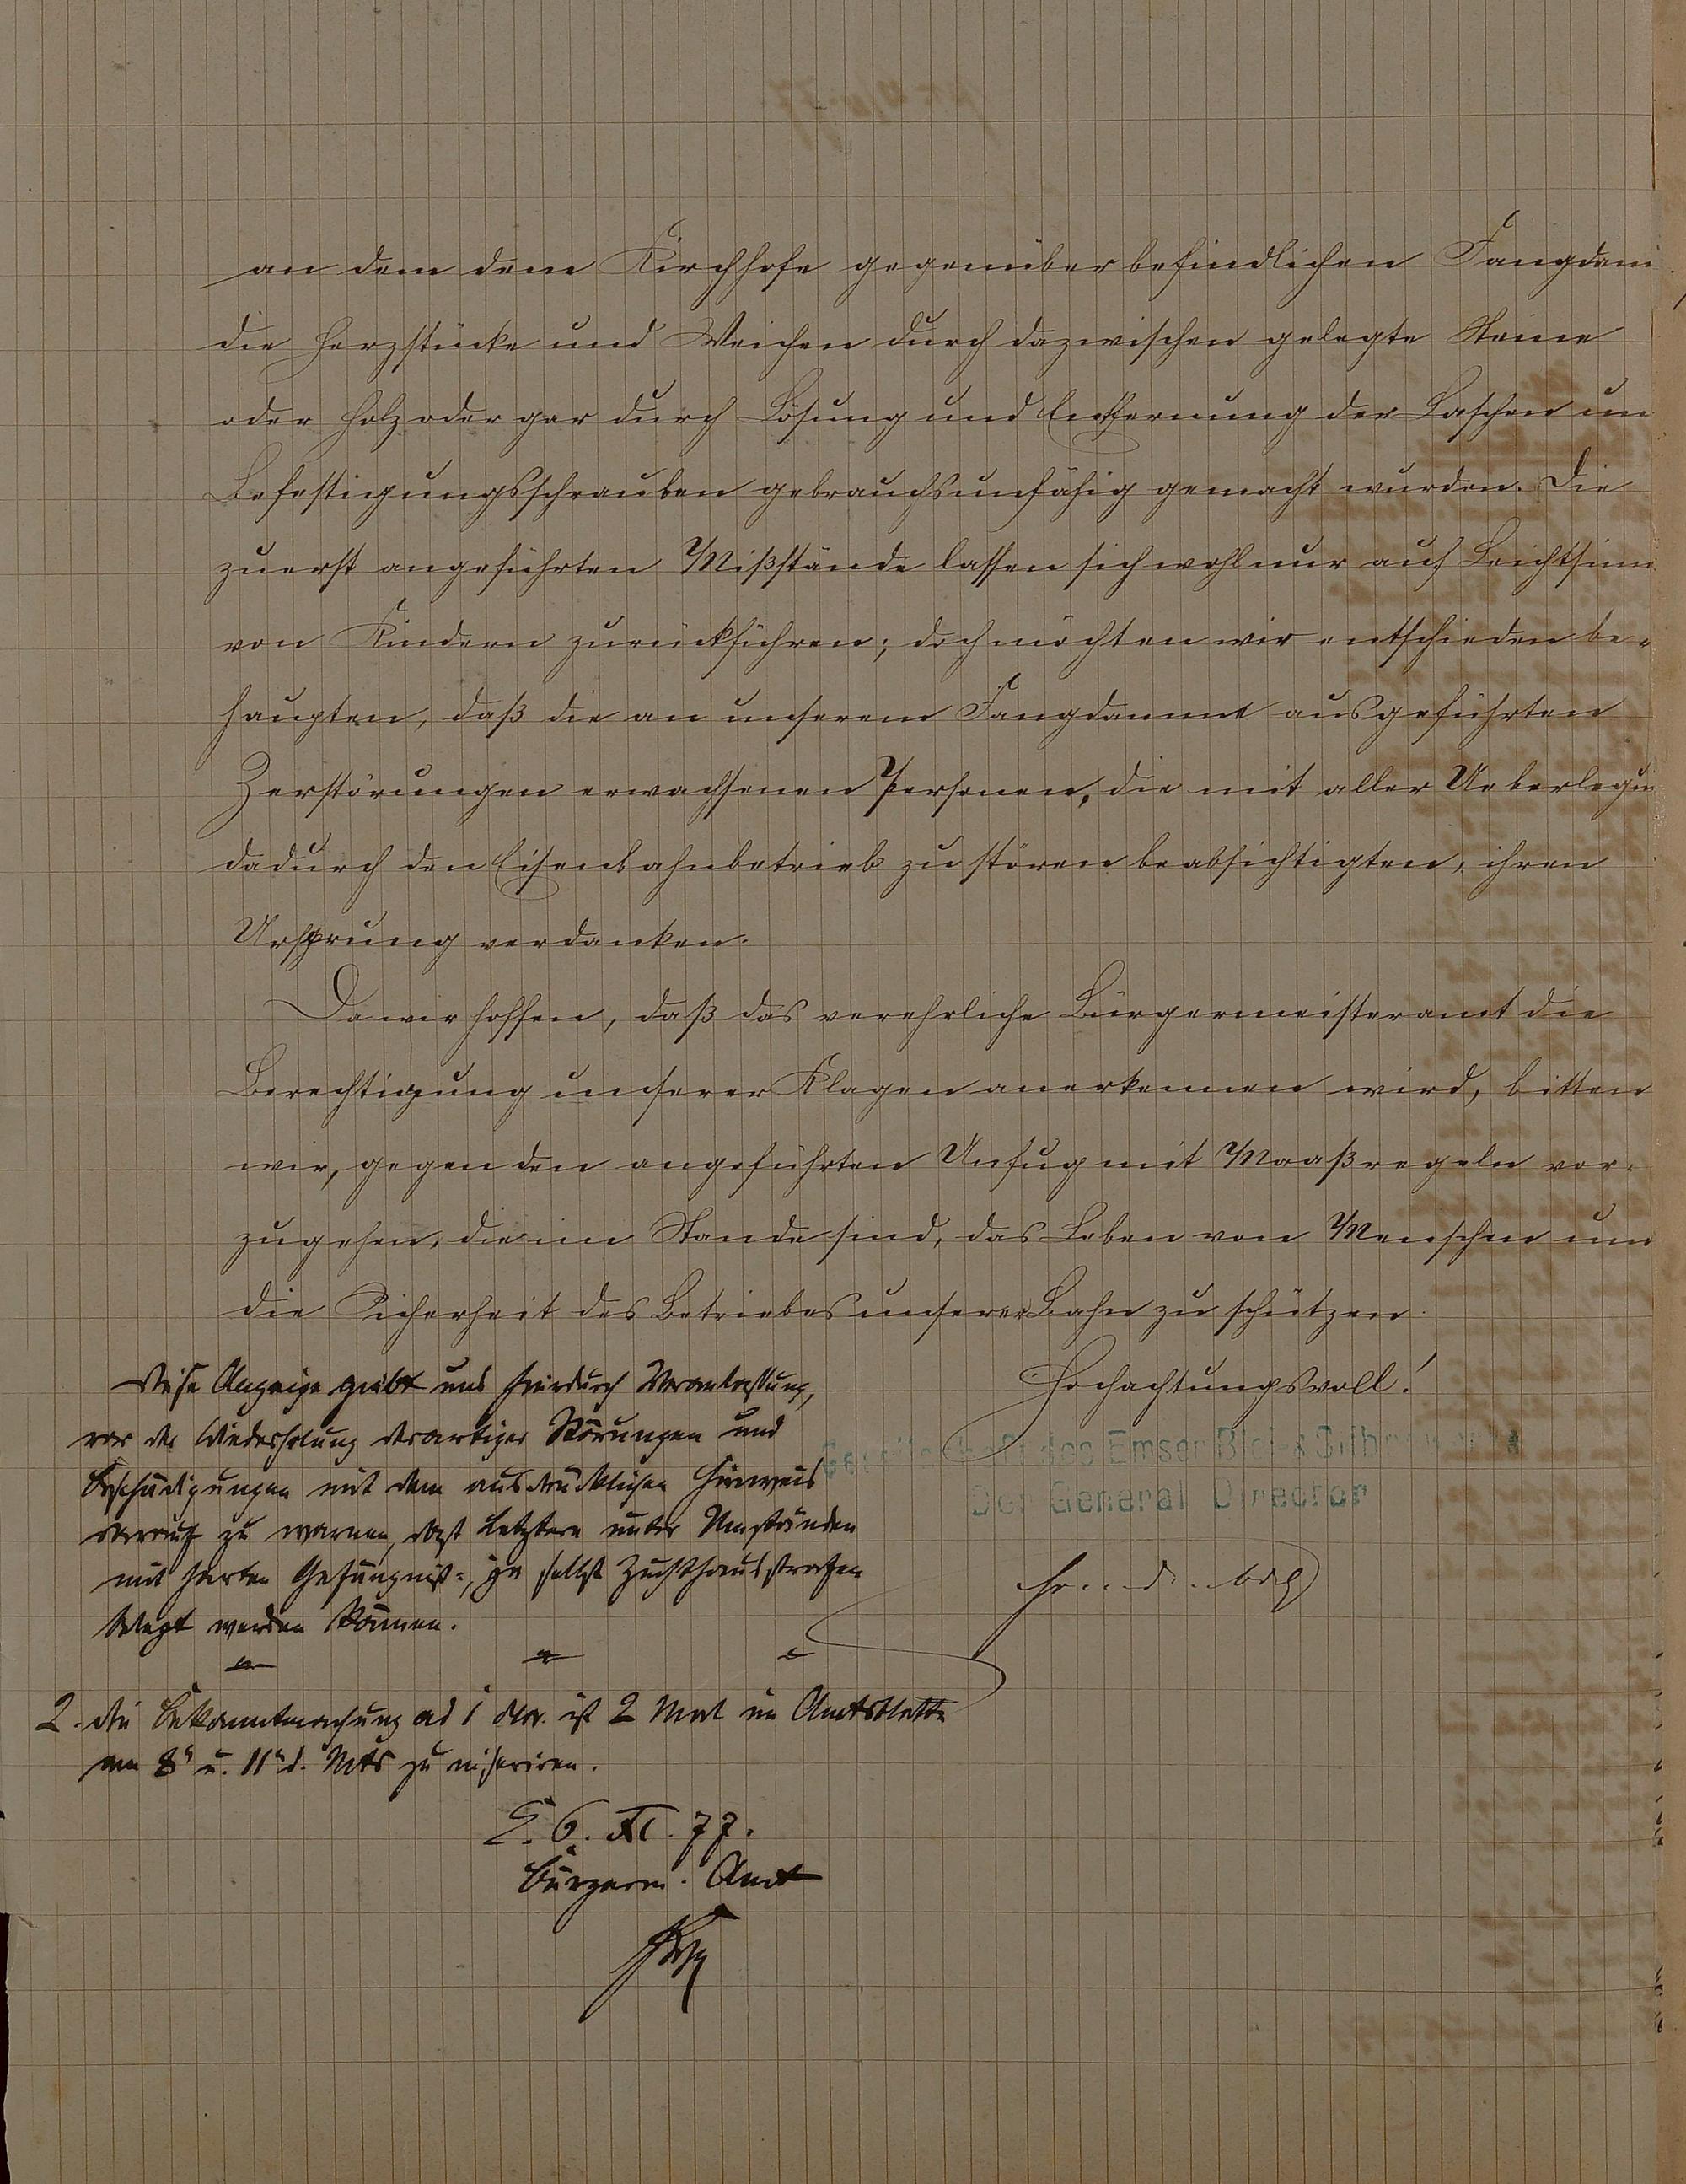 an dem dem Kirchhofe gegenüber befindlichen Fangdam
die Herzstücke und Weichen durch dazwischen gelegte Steine
oder Holz oder gar durch Lösung und Entfernung der Laschen un
Befestigungsschrauben gebrauchsunfähig gemacht wurden. Die
zuerst angeführten Mißstände lassen sich wohl nur auf Leichtsinn
von Kindern zurückführen; doch möchten wir entschieden be-
haupten, daß die an unserem Fangdamme ausgeführten
Zerstörungen erwachsenen Personen, die mit aller Ueberlegun
dadurch den Eisenbahnbetrieb zu stören beabsichtigten, ihren
Ursprung verdanken.
Da wir hoffen, daß das verehrliche Bürgermeisteramt die
Berechtigung unserer Klagen anerkennen wird, bitten
wir, gegen den angeführten Unfug mit Maaßregeln vor-
zugehen, die im Stande sind, das Leben von Menschen un
die Sicherheit des Betriebes unserer Bahn zu schützen.
Hochachtungsvoll!
Gesellschaft des Emser Blei- & Silberwerks
Der General Director
Diese Anzeige giebt uns hierdurch Veranlassung,
vor der Wiederholung derartiger Störungen und
Beschädigungen mit dem ausdrücklichen Hinweis
darauf zu warnen, daß Letztere unter Umständen
mit harten Gefängniß-, ja selbst Zuchthausstrafen
belegt werden können.
2. Die Bekanntmachung ad 1 ist 2 Mal im Amtsblatte
am 8n u. 11n d. Mts zu inseriren.
E. 6. XI. 77.
Bürgerm. Amt